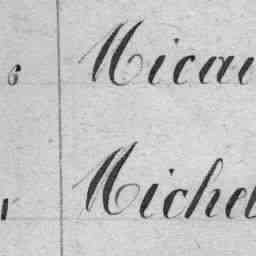 6 Micau
Michel